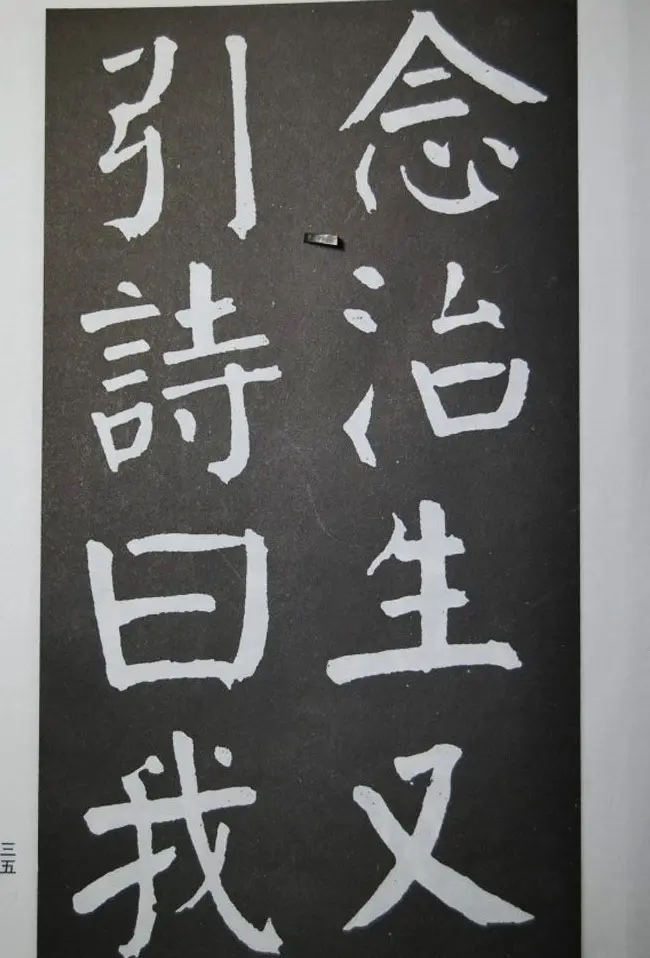 念治生又
引詩曰我
三五